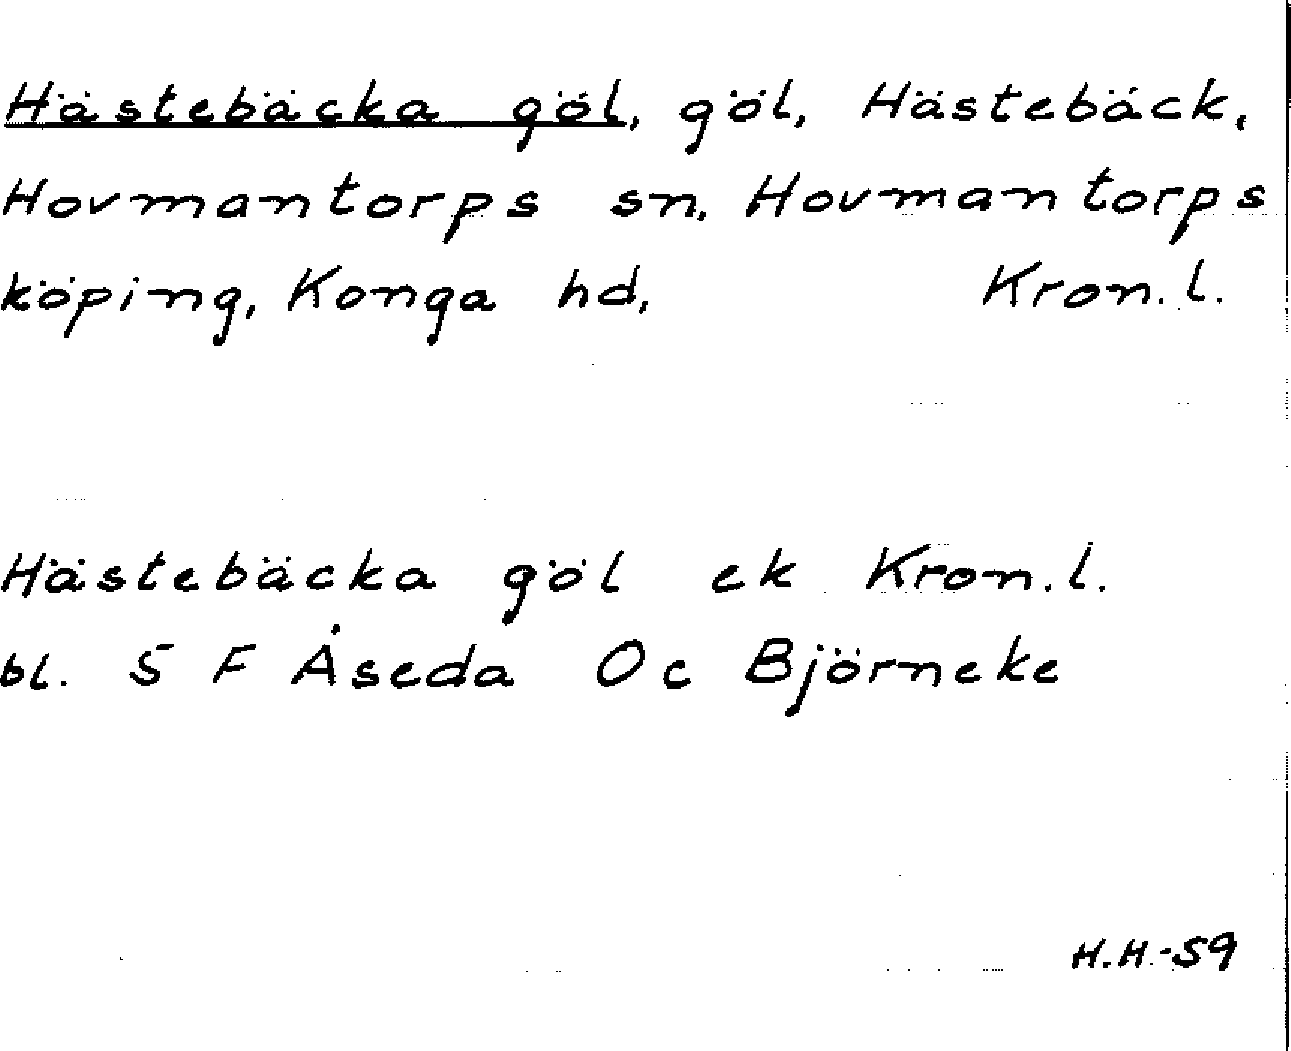 Hästebäcka göl, göl, Hästebäck,
Hovmantorps sn, Hovmantorps
köping, Konga hd, Kron.l.
Hästebäcka göl ek Kron.l.
bl. 5 F Åseda Oc Björneke
H.H.-59